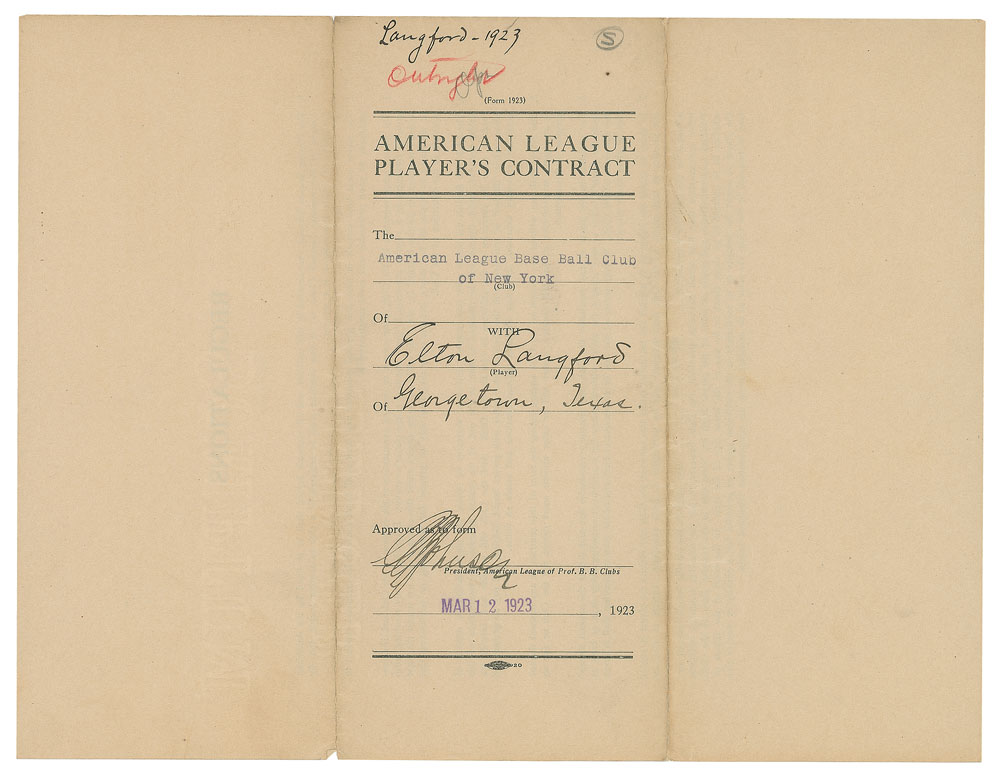 Langford - 1923
S
Outright
(Form 1923)
AMERICAN LEAGUE
PLAYER'S CONTRACT
The
American League Base Ball Club
of New York
(Club)
Of
WITH
Elton Langford
(Player)
Of Georgetown, Texas.
Approved as to form
Johnson
President, American League of Prof. B. B. Clubs
MAR 12 1923 , 1923
20